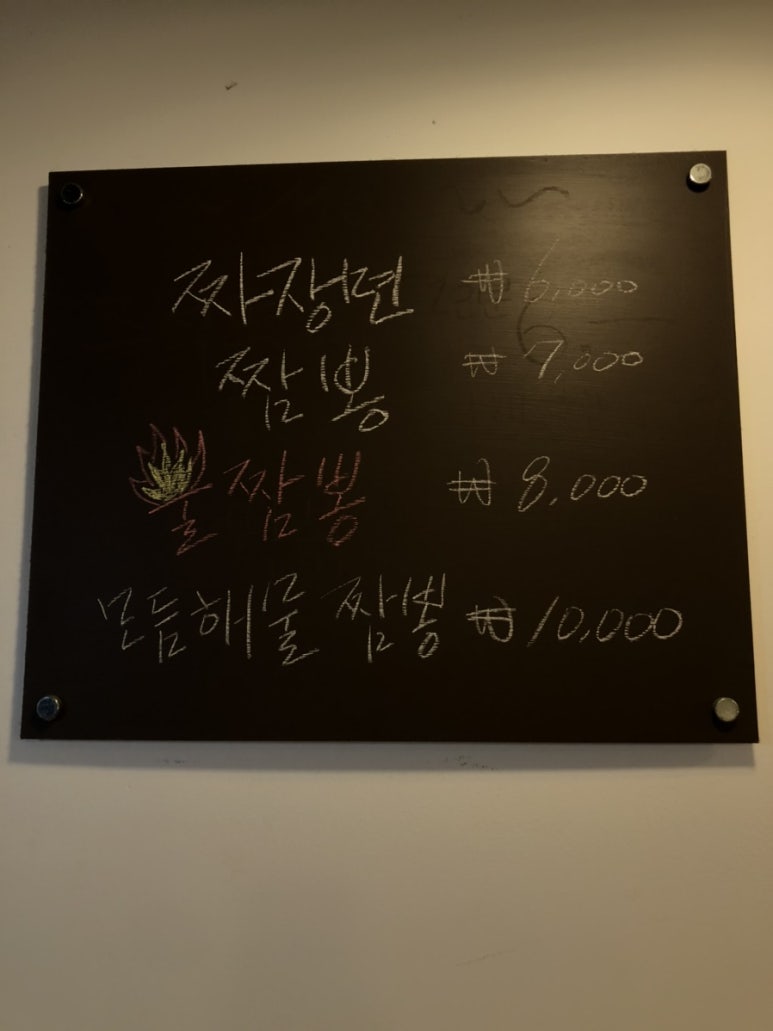 짜장면 ₩ 6,000
짬뽕 ₩ 7,000
불짬뽕 ₩ 8,000
모듬해물 짬뽕 ₩ 10,000